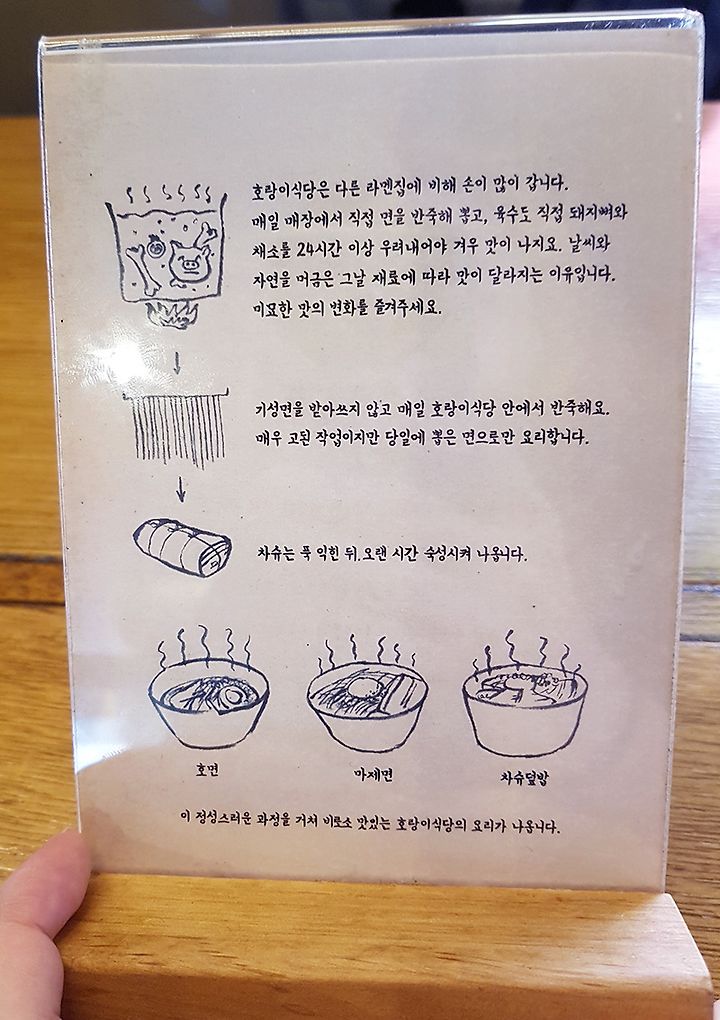 호랑이식당은 다른 라멘집에 비해 손이 많이 갑니다.
매일 매장에서 직접 면을 반죽해 뽑고, 육수도 직접 돼지뼈와
채소를 24시간 이상 우려내어야 겨우 맛이 나지요. 날씨와
자연을 머금은 그날 재료에 따라 맛이 달라지는 이유입니다.
미묘한 맛의 변화를 즐겨주세요.
기성면을 받아쓰지 않고 매일 호랑이식당 안에서 반죽해요.
매우 고된 작업이지만 당일에 뽑은 면으로만 요리합니다.
차슈는 푹 익힌 뒤 오랜 시간 숙성시켜 나옵니다.
호면 마제면 차슈덮밥
이 정성스러운 과정을 거쳐 비로소 맛있는 호랑이식당의 요리가 나옵니다.